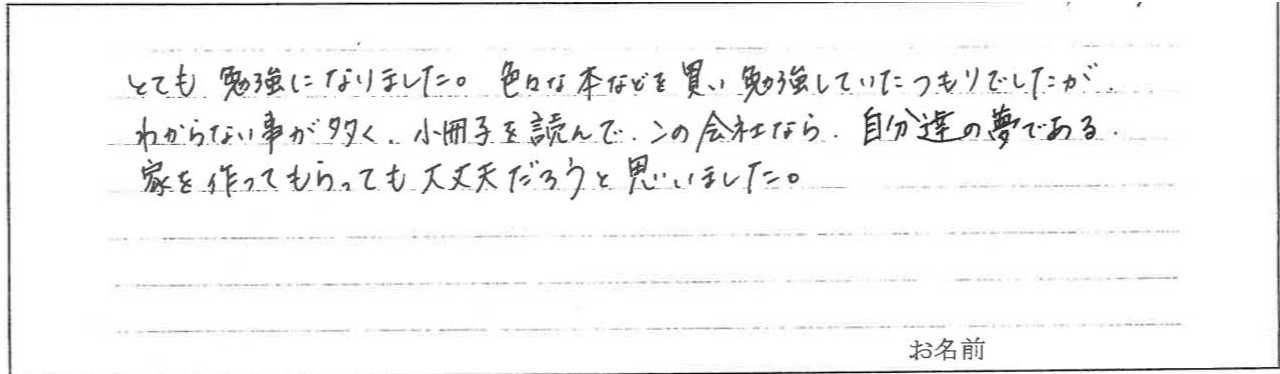 とても勉強になりました。色々な本などを買い勉強していたつもりでしたが、
わからない事が多く、小冊子を読んで、この会社なら、自分達の夢である、
家を作ってもらっても大丈夫だろうと思いました。
お名前